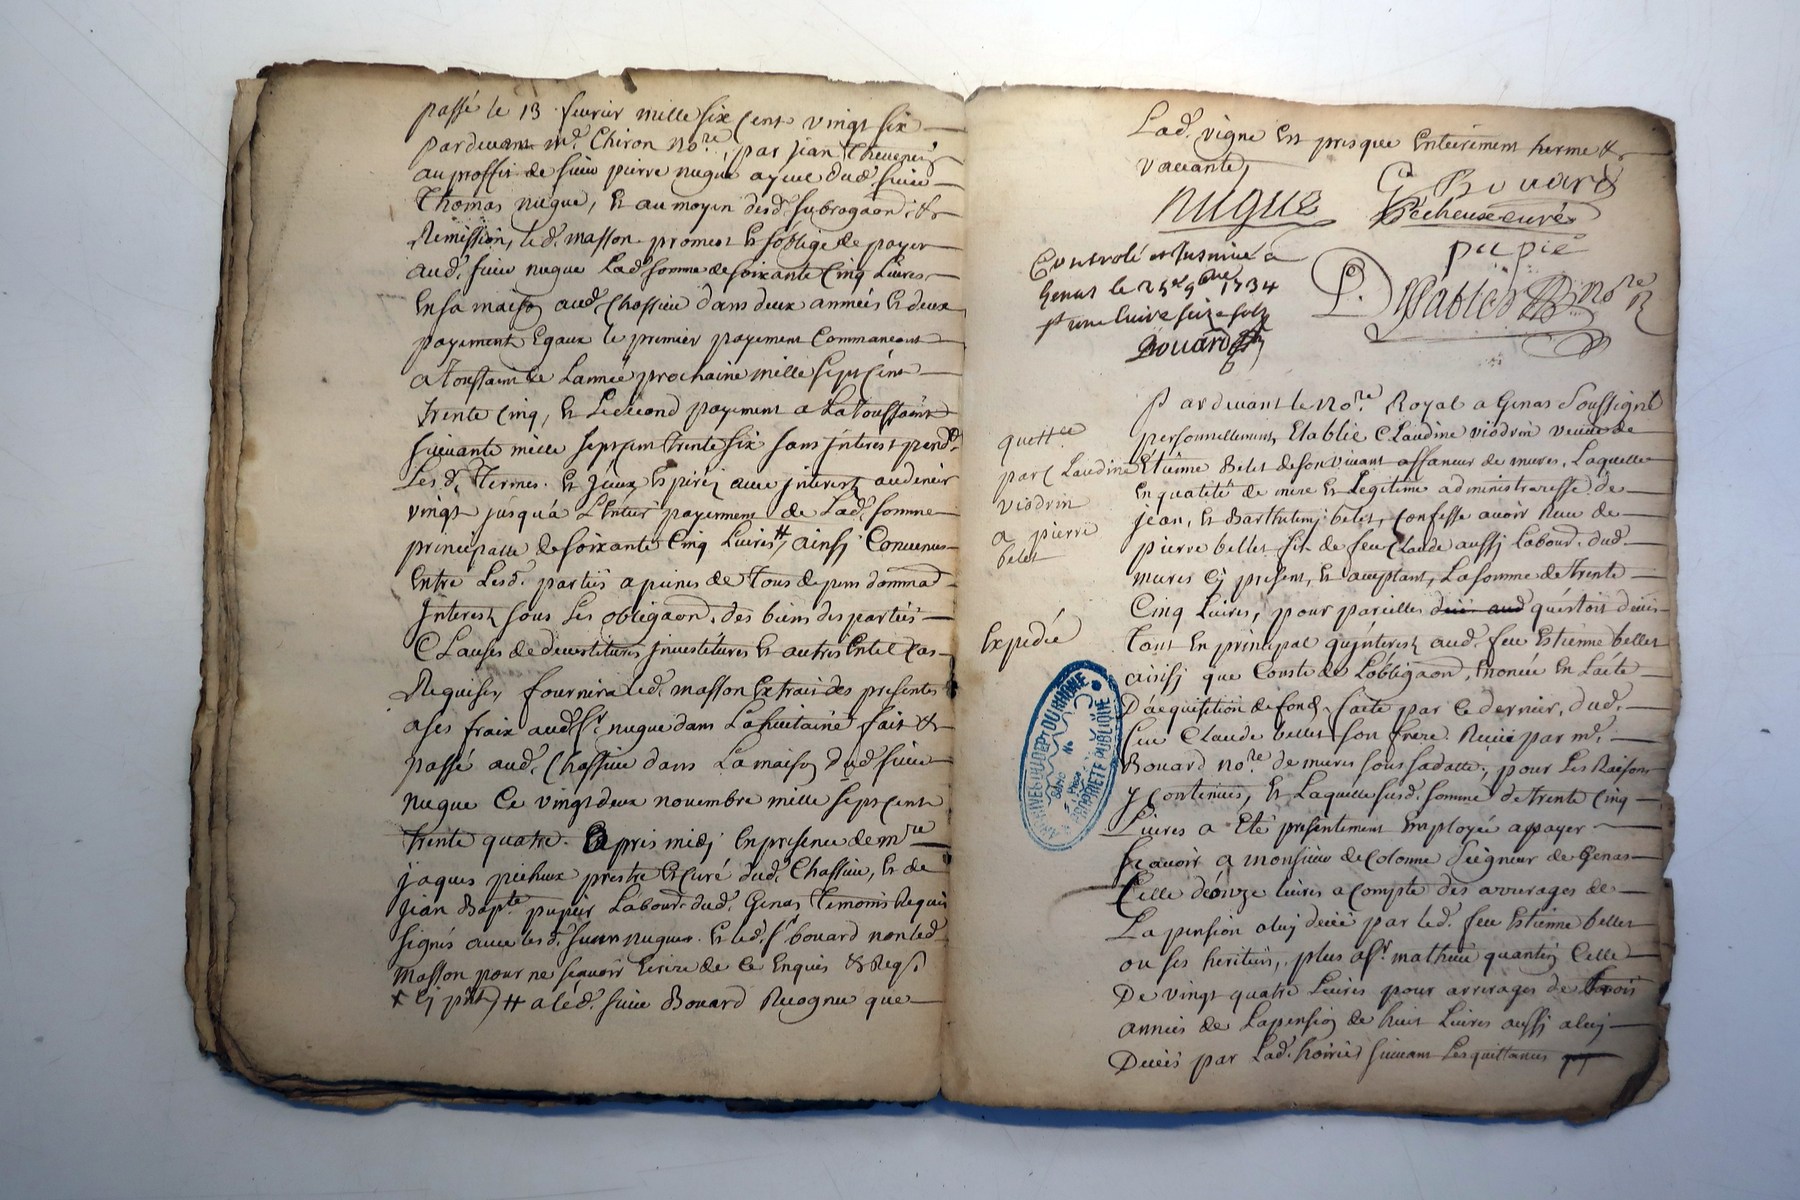 passé le 13 fevrier mille six Cent vingt six
pardevant me. Chiron nore, par jean Thevenin
au proffit de sieur pierre nugue ayeul dud. sieur
Thomas nugue, et au moyen desd. subrogaon. et
Remission, led. masson promet et soblige de payer
aud. sieur nugue Lad. somme de soixante Cinq Livres
En sa maison aud. Chassieu dans deux années et deux
payement Egaux le premier payement Commancant
a Toussaint de Lannée prochaine mille sept Cent
trente Cinq, et Le second payement a La Toussaint
suivante mille sept cent trente six sans jnterest pendt.
Lesd. Termes. et jceux Expirés avec jnterest au denier
vingt jusqu'a L'Entier payement de Lad. somme
principalle de soixante Cinq Livres ⧺, ainsj Convenus
Entre Lesd. parties a peines de Tous depens dommad
jnterest sous Les obligaon. des biens des parties
Clauses de devestitures jnvestitures et autres En tel Cas
Requises, fournira led. masson Extrait des presentes
a ses fraix aud. sr. nugue dans La huitaine, fait et
passé aud. Chassieu dans La maison dud. sieur
nugue Ce vingt deux novembre mille sept Cents
trente quatre. apres midj En presence de mre
jaques pecheux prestre et Curé dud. Chassieu, et de
jean Bapte. pupier Labourr. dud. Genas Temoins Requis
signés avec lesd. sieurs nugue. et led. sr. bouard non led.
masson pour ne sçavoir Ecrire de Ce Enquis et Reqs.
⧺ a led. sieur Bouard Recognu que
Lad. vigne Est presque Entierement herme et
vacante,
nugue
G Bouard
Pecheux curé
pupié
Controlé et Insinué à
Genas le 25e 9bre 1734
Rt une livre seize solz
Bouard
nore
R
Pardevant le nore. Royal a Genas Soussigné
quettce
par Claudine
viodrin
a pierre
belet
personnellement Etablie Claudine viodrin veuve de
Etiënne Belet de son vivant affaneur de mures, Laquelle
En qualité de mere et Legitime administraresse de
jean, et Barthelemj belet, Confesse avoir Receu de
pierre bellet fils de feu Claude aussj Labourr. dud.
mures Cy present, et acceptant, La somme de trente
Cinq Livres, pour pareilles quéstoit deüe
Expedié
Tant En principal qu'jnterest aud. feu Estienne bellet
ainsj que Conste de L'obligaon, Enoncée En Lacte
D'acquisition de fonds faite par Ce dernier, dud.
feu Claude bellet son frere. Receu par me.
Bouard nore. de mures sous sa datte, pour Les Raisons
y Contenues, et Laquelle susd. somme de trente Cinq
Livres a Eté presentement Employée a payer
sçavoir a monsieur de Colonne seigneur de Genas
Celle d'éonze livres a Compte des arrerages de
La pension a luy deüe par led. feu Estienne bellet
ou ses heritiers, plus a sr. mathieu quantin Celle
De vingt quatre Livres pour arrerages de trois
années de La pension de huit Livres aussj a luy
Deües par Lad. hoirie suivant Les quittances
ARCHIVES DU DEPT DU RHONE
PROPRIETE PUBLIQUE